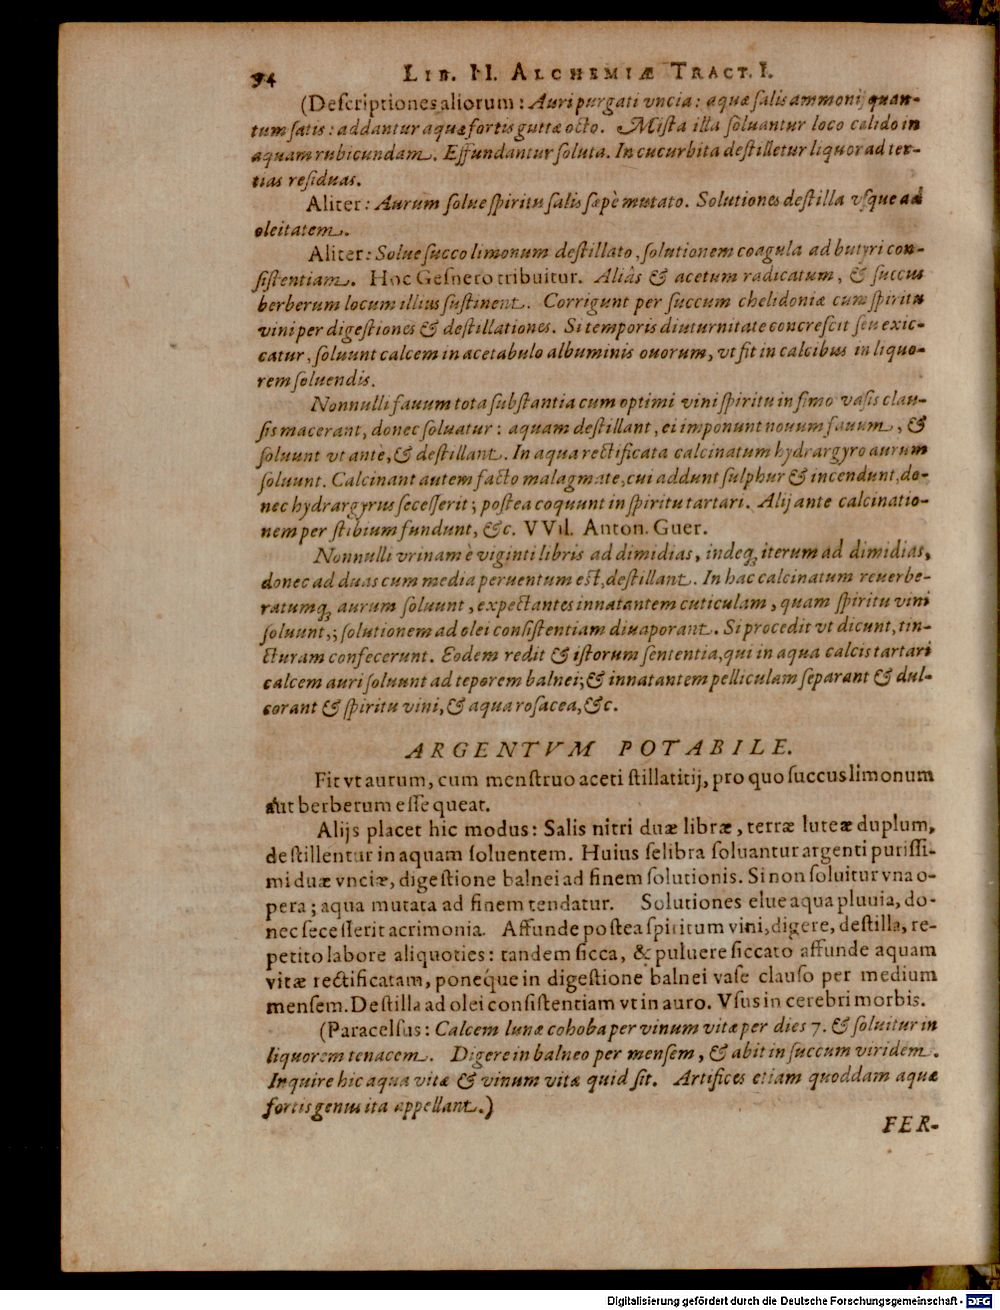 94 LIB. II. ALCHEMIÆ TRACT. I.
(Deſcriptiones aliorum: Auri purgati vncia: aquæ ſalis ammonij quan-
tum ſatis: addantur aquæ fortis guttæ octo. Miſta illa ſoluantur loco calido in
aquam rubicundam. Effundantur ſoluta. In cucurbita deſtilletur liquor ad ter-
tias reſiduas.
Aliter: Aurum ſolue ſpiritu ſalis ſæpè mutato. Solutiones deſtilla vſque ad
oleitatem.
Aliter: Solue ſucco limonum deſtillato, ſolutionem coagula ad butyri con-
ſiſtentiam. Hoc Geſnero tribuitur. Aliâs & acetum radicatum, & ſuccus
berberum locum illius ſuſtinent. Corrigunt per ſuccum chelidoniæ cum ſpiritu
vini per digeſtiones & deſtillationes. Si temporis diuturnitate concreſcit ſeu exic-
catur, ſoluunt calcem in acetabulo albuminis ouorum, vt fit in calcibus in liquo-
rem ſoluendis.
Nonnulli fauum tota ſubſtantia cum optimi vini ſpiritu in fimo vaſis clau-
ſis macerant, donec ſoluatur: aquam deſtillant, ei imponunt nouum fauum, &
ſoluunt vt ante, & deſtillant. In aqua rectificata calcinatum hydrargyro aurum
ſoluunt. Calcinant autem facto malagmate, cui addunt ſulphur & incendunt, do-
nec hydrargyrus ſeceſſerit; poſtea coquunt in ſpiritu tartari. Alij ante calcinatio-
nem per ſtibium fundunt, &c. VVil. Anton. Guer.
Nonnulli vrinam è viginti libris ad dimidias, indeq; iterum ad dimidias,
donec ad duas cum media peruentum eſt, deſtillant. In hac calcinatum reuerbe-
ratumq; aurum ſoluunt, expectantes innatantem cuticulam, quam ſpiritu vini
ſoluunt,; ſolutionem ad olei conſiſtentiam diuaporant. Si procedit vt dicunt, tin-
cturam confecerunt. Eodem redit & iſtorum ſententia, qui in aqua calcis tartari
calcem auri ſoluunt ad teporem balnei; & innatantem pelliculam ſeparant & dul-
corant & ſpiritu vini, & aqua roſacea, &c.
ARGENTVM POTABILE.
Fit vt aurum, cum menſtruo aceti ſtillatitij, pro quo ſuccus limonum
aut berberum eſſe queat.
Alijs placet hic modus: Salis nitri duæ libræ, terræ luteæ duplum,
deſtillentur in aquam ſoluentem. Huius ſelibra ſoluantur argenti puriſſi-
mi duæ vnciæ, digeſtione balnei ad finem ſolutionis. Si non ſoluitur vna o-
pera; aqua mutata ad finem tendatur. Solutiones elue aqua pluuia, do-
nec ſeceſſerit acrimonia. Affunde poſtea ſpiritum vini, digere, deſtilla, re-
petito labore aliquoties: tandem ſicca, & puluere ſiccato affunde aquam
vitæ rectificatam, ponéque in digeſtione balnei vaſe clauſo per medium
menſem. Deſtilla ad olei conſiſtentiam vt in auro. Vſus in cerebri morbis.
(Paracelſus: Calcem lunæ cohoba per vinum vitæ per dies 7. & ſoluitur in
liquorem tenacem. Digere in balneo per menſem, & abit in ſuccum viridem.
Inquire hic aqua vitæ & vinum vitæ quid ſit. Artifices etiam quoddam aquæ
fortis genus ita appellant.)
FER-
Digitalisierung gefördert durch die Deutsche Forschungsgemeinschaft - DFG